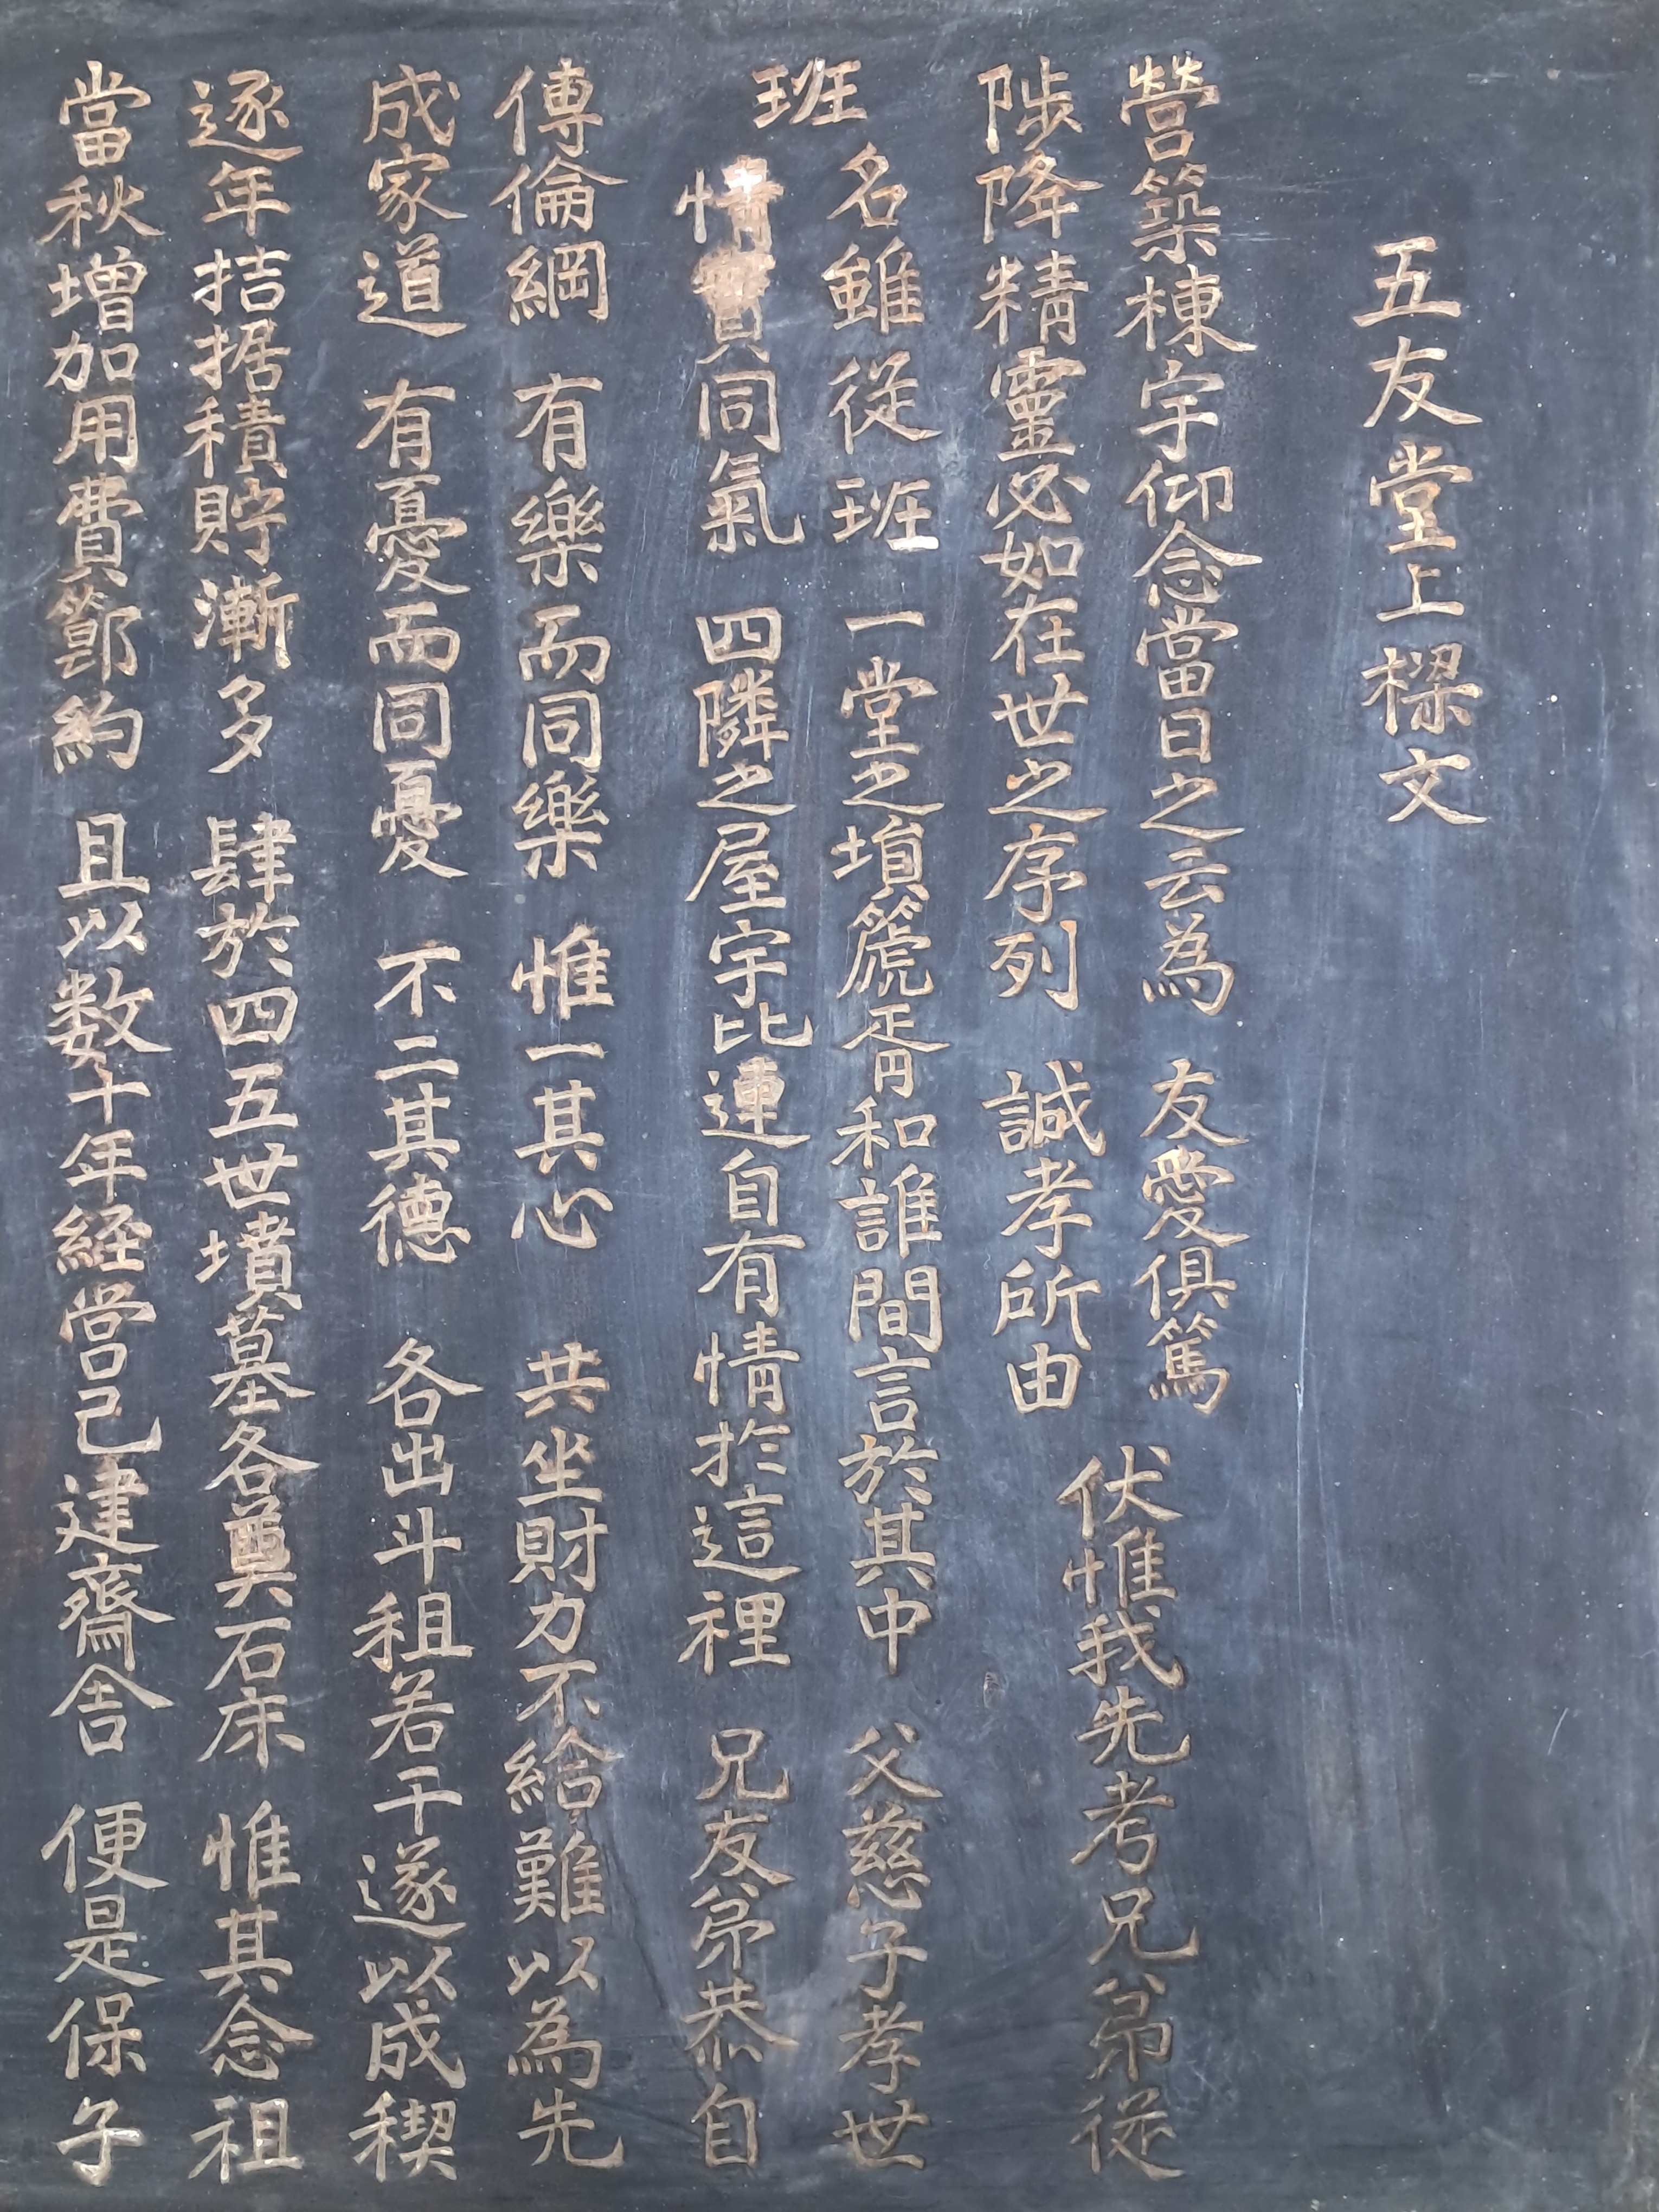 五友堂上樑文
營築棟宇仰念當日之云為 友愛俱篤
陟降精靈必如在世之序列 誠孝所由
伏惟我先考兄弟從
班
名雖從班 一堂之塤箎胥和誰間言於其中 父慈子孝世
情實同氣 四隣之屋宇比連自有情於這裡 兄友弟恭自
傳倫綱 有樂而同樂 惟一其心 共坐財力不給難以為先
成家道 有憂而同憂 不二其德 各出斗租若干遂以成稧
逐年拮据積貯漸多 肆於四五世墳墓各奠石床 惟其念祖
當秋增加用費節約 且以数十年経営己建齋舍 便是保子